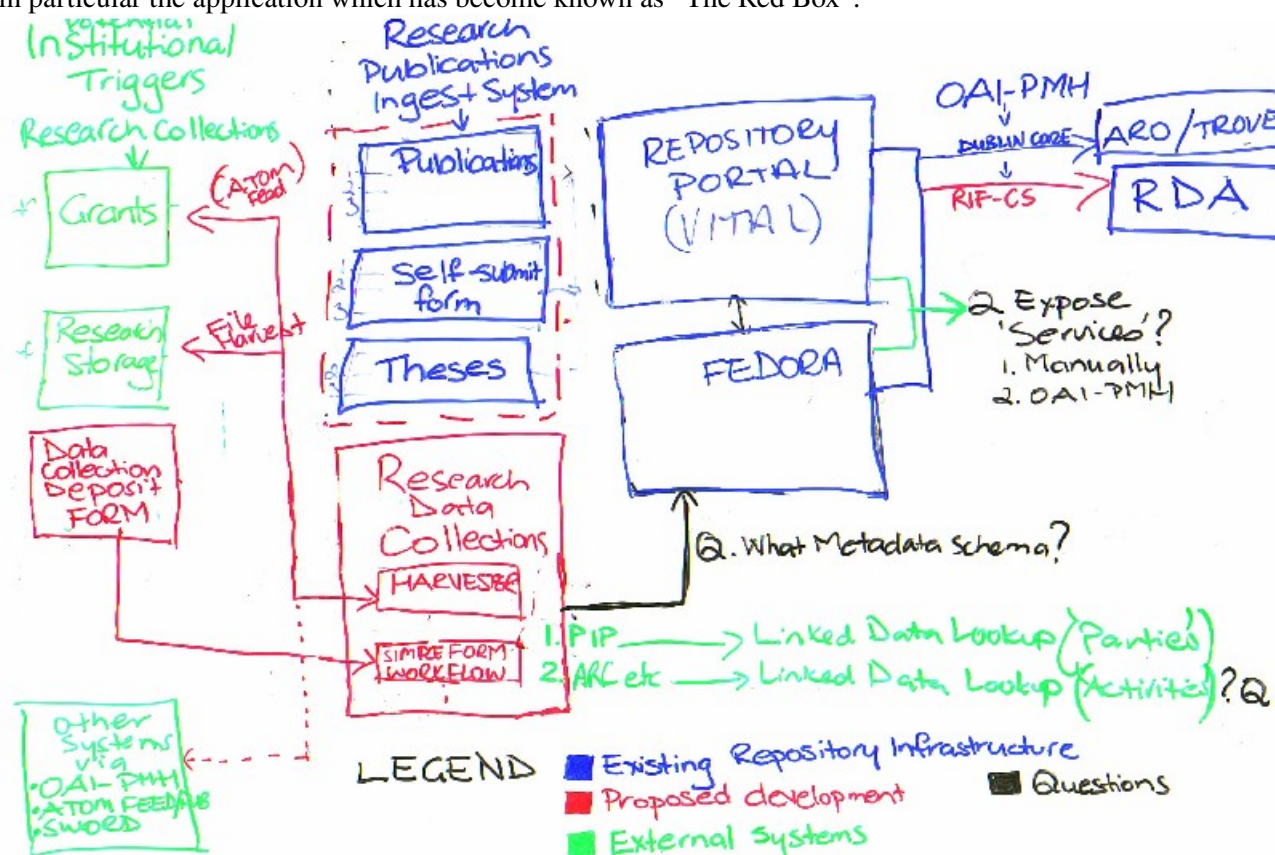 in particular the application which has become known as "The Red Box".
Potential
Institutional
Triggers
Research Collections
Grants
Research
Storage
Data
Collection
Deposit
FORM
Other
Systems
via
• OAI-PMH
• ATOM FEED/PUB
• SWORD
(ATOM
feed)
File
Harvest
Research
Publications
Ingest System
Publications
Self-submit
form
Theses
Research
Data
Collections
HARVESTER
SIMPLE FORM
WORKFLOW
REPOSITORY
PORTAL
(VITAL)
FEDORA
OAI-PMH
DUBLIN CORE
RIF-CS
ARO/TROVE
RDA
Q Expose
'Services'?
1. Manually
2. OAI-PMH
Q. What Metadata Schema?
1. PIP Linked Data Lookup (Parties)
2. ARC etc Linked Data Lookup (Activities)? Q
LEGEND
Existing Repository Infrastructure
Proposed development
External Systems
Questions